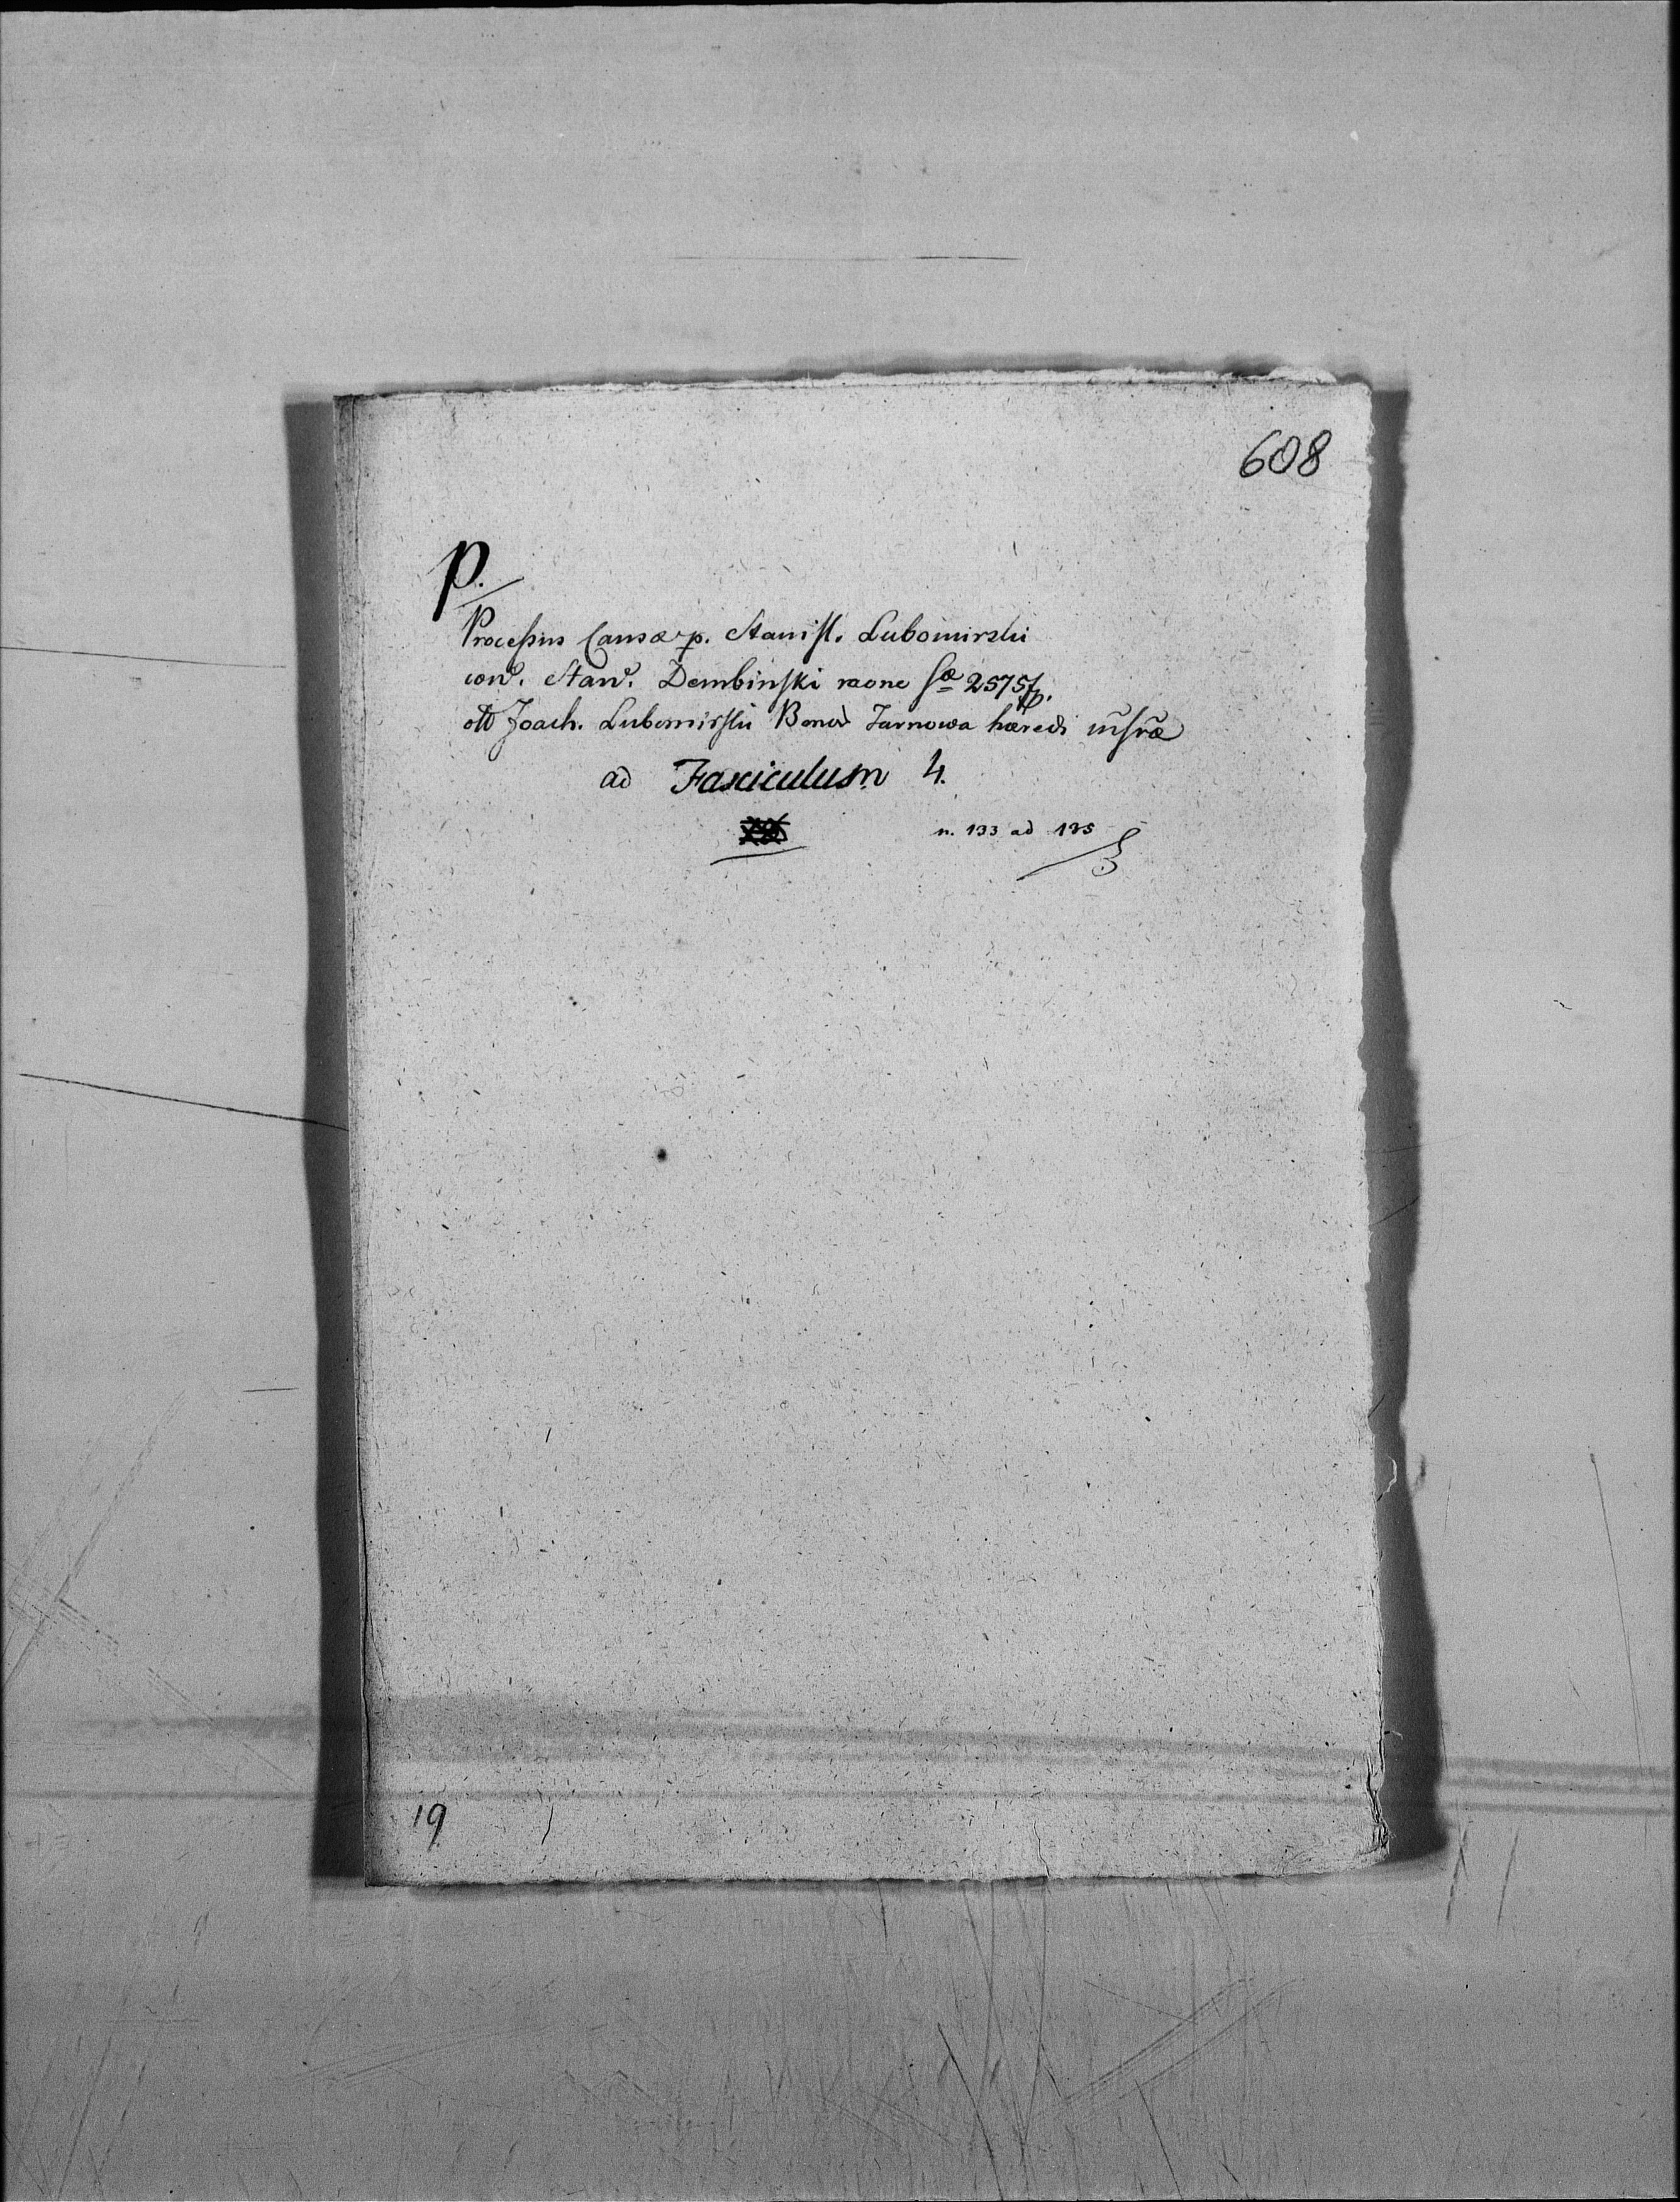 608
p.
Processus Causæ p. Stanisl. Lubomirski
con. Stan. Dembinski raone sæ 2575 fp.
Joach. Lubomirski Bonor Tarnowa hæredi
ad Fasciculum 4.
n. 133 ad 135
19